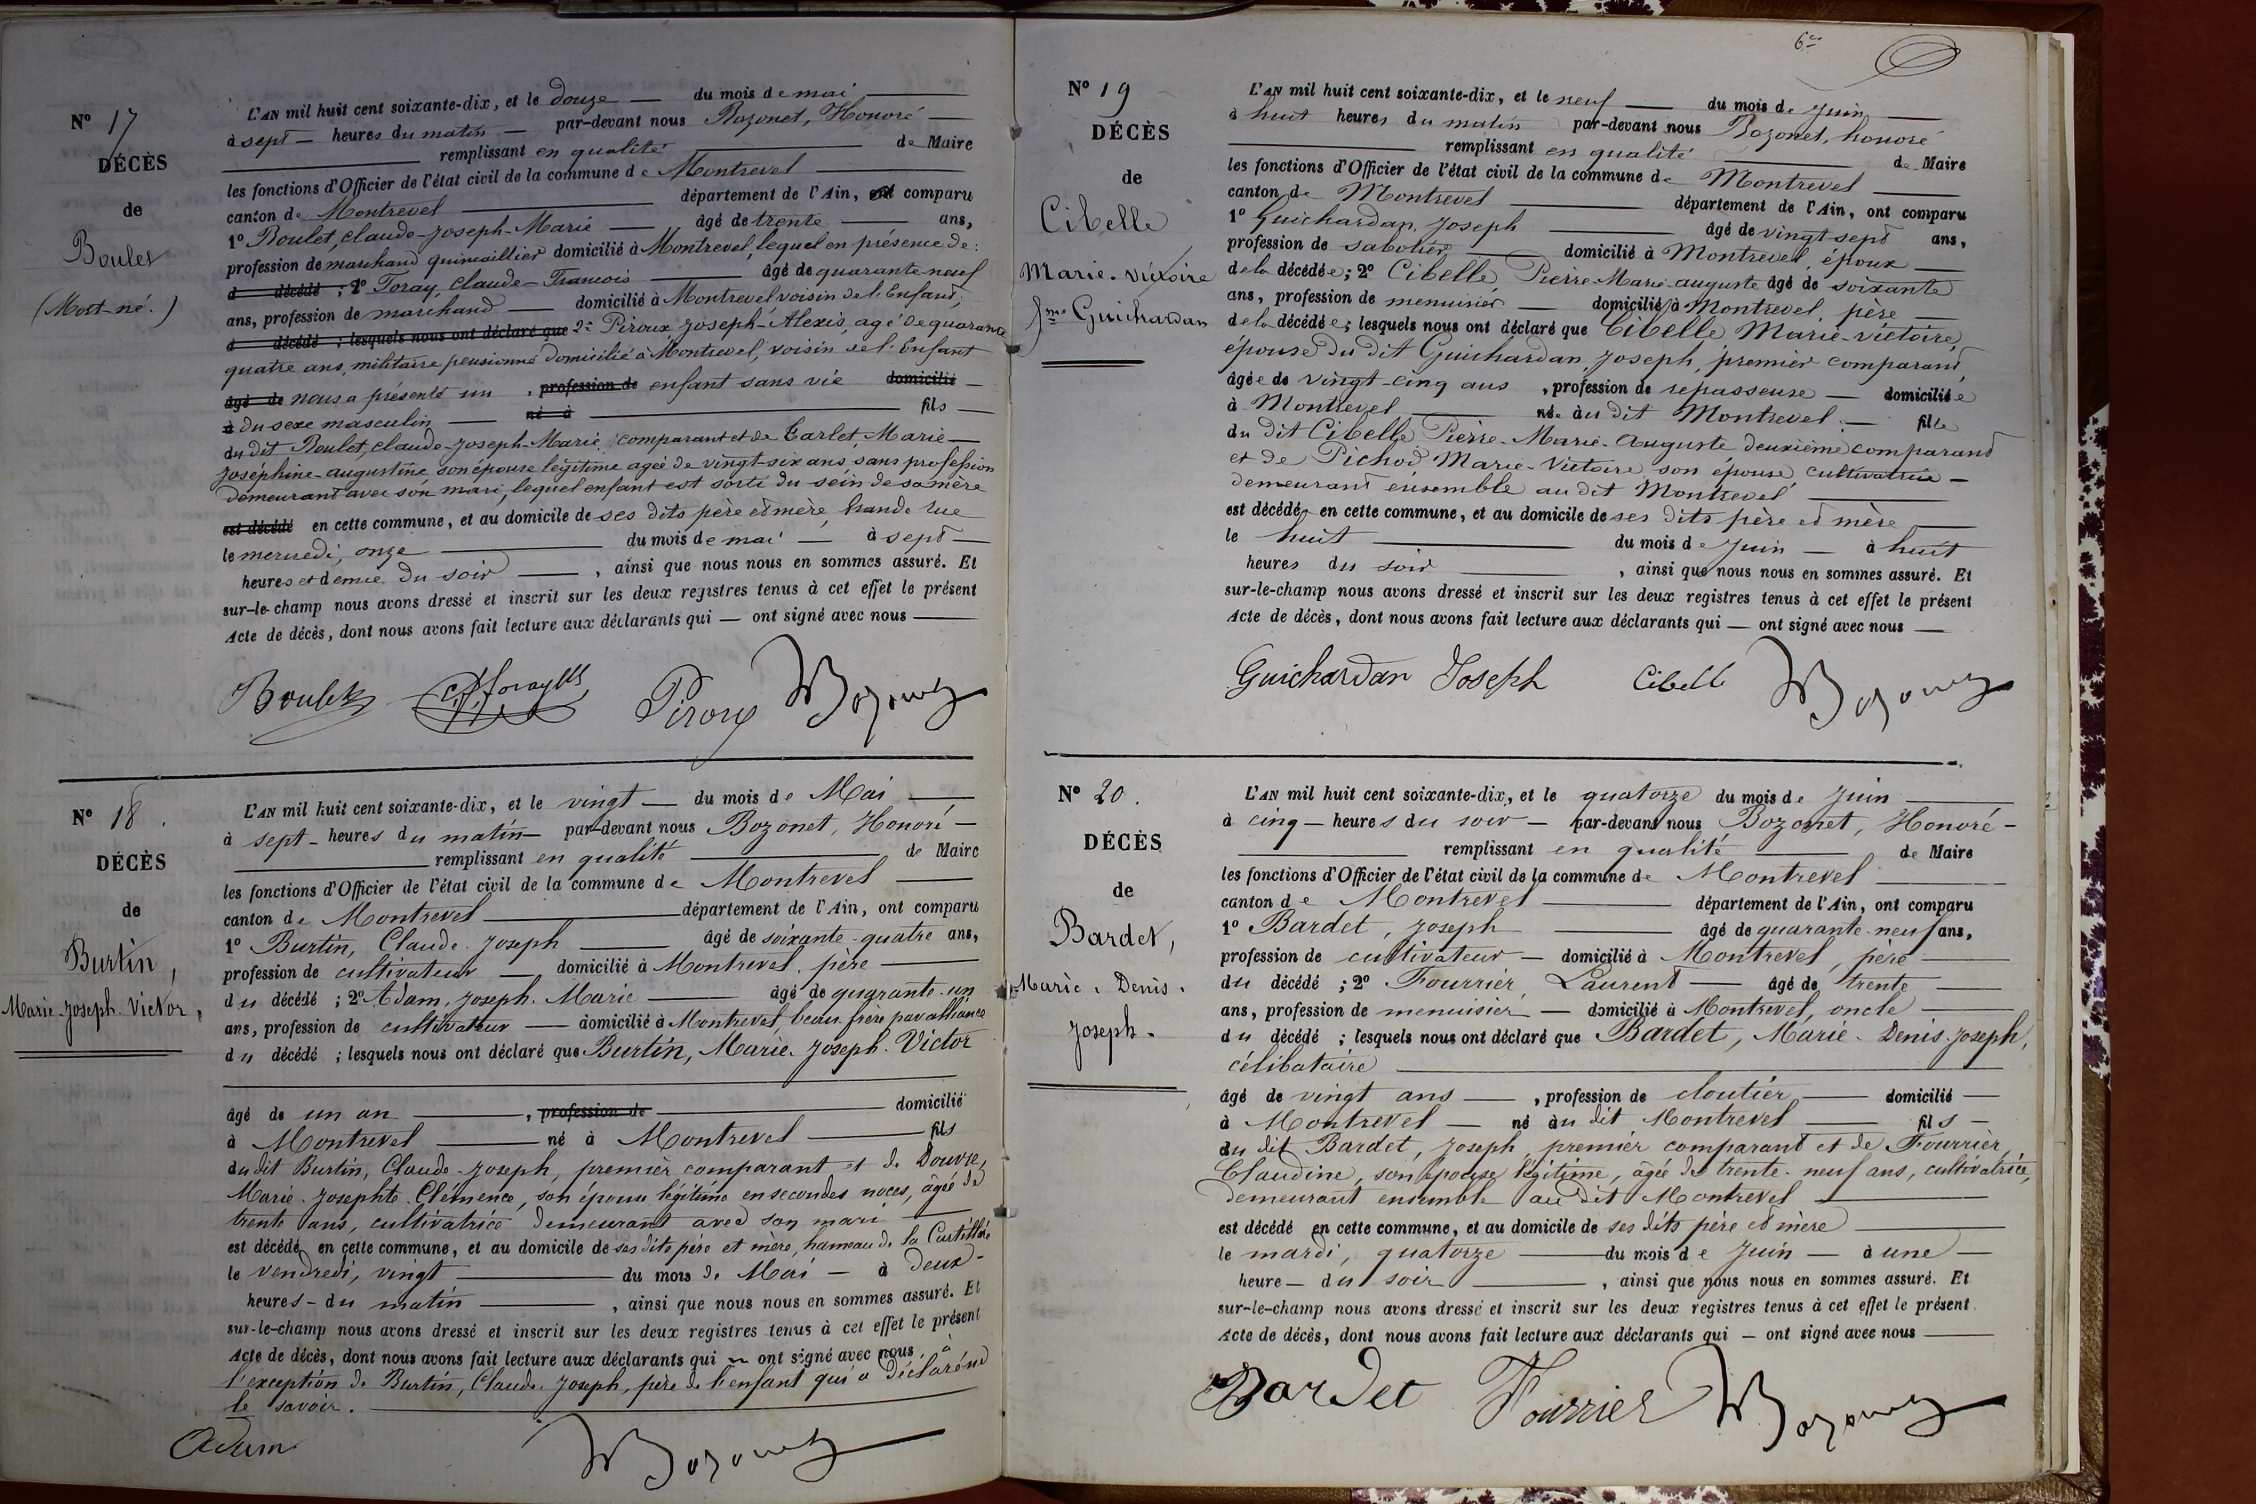 Nº 17
DÉCÈS
de
Boulet
(Mort-né.)
L'AN mil huit cent soixante-dix, et le douze — du mois de mai —
à sept — heures du matin — par-devant nous Bozonet, Honoré —
remplissant en qualité — de Maire
les fonctions d'Officier de l'état civil de la commune de Montrevel —
canton de Montrevel — département de l'Ain, ont comparu
1º Boulet, claude-Joseph-Marie — âgé de trente — ans,
profession de marchand quincaillier domicilié à Montrevel, lequel en présence de:
d décédé ; 2º Foray, claude-Francois — âgé de quarante neuf
ans, profession de marchand — domicilié à Montrevel voisin de l'Enfant,
d décédé ; lesquels nous ont déclaré que 2º Piroux Joseph-Alexis, agé de quarante
quatre ans, militaire pensionné domicilié à Montrevel, voisin de l'Enfant
âgé de nous a présenté un , profession de enfant sans vie domicilié —
à du sexe masculin — né à — fils —
du dit Boulet, claude-Joseph-Marie, comparant et de Carlet, Marie —
Joséphine-augustine, son épouse légitime agée de vingt-six ans, sans profession
demeurant avec son mari, lequel enfant est sorti du sein de sa mère
est décédé en cette commune, et au domicile de ses dits père et mère, Grande rue
le mercredi, onze — du mois de mai — à sept —
heures et demie du soir — , ainsi que nous nous en sommes assuré. Et
sur-le-champ nous avons dressé et inscrit sur les deux registres tenus à cet effet le présent
Acte de décès, dont nous avons fait lecture aux déclarants qui — ont signé avec nous —
Boulet Foray Piroux Bozonet
Nº 18.
DÉCÈS
de
Burtin,
Marie-Joseph-Victor,
L'AN mil huit cent soixante-dix, et le vingt — du mois de Mai —
à sept — heures du matin — par-devant nous Bozonet, Honoré —
remplissant en qualité — de Maire
les fonctions d'Officier de l'état civil de la commune de Montrevel —
canton de Montrevel — département de l'Ain, ont comparu
1º Burtin, Claude-Joseph — âgé de soixante-quatre ans,
profession de cultivateur — domicilié à Montrevel, père —
du décédé ; 2º Adam, Joseph-Marie — âgé de quarante-un
ans, profession de cultivateur — domicilié à Montrevel, beau-frère par alliance
du décédé ; lesquels nous ont déclaré que Burtin, Marie-Joseph-Victor
âgé de un an — , profession de — domicilié
à Montrevel — né à Montrevel — fils
du dit Burtin, Claude-Joseph, premier comparant et de Douvre,
Marie-Josephte-Clémence, son épouse légitime en secondes noces, âgée de
trente ans, cultivatrice demeurant avec son mari —
est décédé en cette commune, et au domicile de ses dits père et mère, hameau de la
le vendredi, vingt — du mois de Mai — à deux —
heures — du matin — , ainsi que nous nous en sommes assuré. Et
sur-le-champ nous avons dressé et inscrit sur les deux registres tenus à cet effet le présent
Acte de décès, dont nous avons fait lecture aux déclarants qui ont signé avec nous, à
l'exception de Burtin, Claude-Joseph, père de l'enfant qui a déclaré ne
le savoir. —
Adam Bozonet
6e
Nº 19
DÉCÈS
de
Cibelle
Marie-Victoire
fme Guichardan
L'AN mil huit cent soixante-dix, et le neuf — du mois de Juin —
à huit heures du matin par-devant nous Bozonet, honoré
remplissant en qualité — de Maire
les fonctions d'Officier de l'état civil de la commune de Montrevel —
canton de Montrevel — département de l'Ain, ont comparu
1º Guichardan, Joseph — âgé de vingt-sept ans,
profession de sabotier — domicilié à Montrevel, époux —
de la décédée ; 2º Cibelle, Pierre-Marie-auguste âgé de soixante
ans, profession de menuisier — domicilié à Montrevel, père —
de la décédée ; lesquels nous ont déclaré que Cibelle Marie-victoire,
épouse du dit Guichardan, Joseph, premier comparant,
âgée de vingt-cinq ans , profession de repasseuse — domiciliée
à Montrevel — née au dit Montrevel — fille
du dit Cibelle, Pierre-Marie-Auguste deuxième comparant
et de Pichod Marie-Victoire son épouse, cultivatrice —
demeurant ensemble au dit Montrevel —
est décédé en cette commune, et au domicile de ses dits père et mère —
le huit — du mois de Juin — à huit
heures du soir — , ainsi que nous nous en sommes assuré. Et
sur-le-champ nous avons dressé et inscrit sur les deux registres tenus à cet effet le présent
Acte de décès, dont nous avons fait lecture aux déclarants qui — ont signé avec nous —
Guichardan Joseph Cibelle Bozonet
Nº 20.
DÉCÈS
de
Bardet,
Marie-Denis-
Joseph-
L'AN mil huit cent soixante-dix, et le quatorze du mois de Juin —
à cinq — heures du soir — par-devant nous Bozonet, Honoré —
remplissant en qualité — de Maire
les fonctions d'Officier de l'état civil de la commune de Montrevel —
canton de Montrevel — département de l'Ain, ont comparu
1º Bardet, Joseph — âgé de quarante-neuf ans,
profession de cultivateur — domicilié à Montrevel, père —
du décédé ; 2º Fourrier, Laurent — âgé de trente —
ans, profession de menuisier — domicilié à Montrevel, oncle —
du décédé ; lesquels nous ont déclaré que Bardet, Marie-Denis-Joseph,
célibataire —
âgé de vingt ans — , profession de cloutier — domicilié —
à Montrevel — né au dit Montrevel — fils —
du dit Bardet, Joseph, premier comparant et de Fourrier,
Claudine, son épouse légitime, âgée de trente-neuf ans, cultivatrice,
demeurant ensemble au dit Montrevel —
est décédé en cette commune, et au domicile de ses dits père et mère —
le mardi, quatorze — du mois de Juin — à une —
heure — du soir — , ainsi que nous nous en sommes assuré. Et
sur-le-champ nous avons dressé et inscrit sur les deux registres tenus à cet effet le présent
Acte de décès, dont nous avons fait lecture aux déclarants qui — ont signé avec nous —
Bardet Fourrier Bozonet